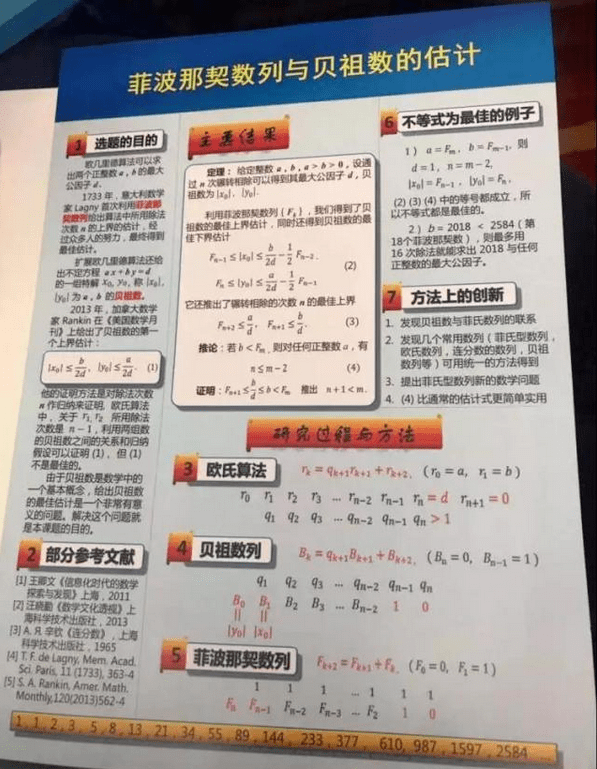 菲波那契数列与贝祖数的估计
1 选题的目的
欧几里德算法可以求
出两个正整数 a, b 的最大
公因子 d.
1733 年，意大利数学
家 Lagny 首次利用菲波那
契数列给出算法中所用除法
次数 n 的上界的估计，经
过众多人的努力，最终得到
最佳估计。
扩展欧几里德算法还给
出不定方程 ax+by=d
的一组特解 x₀, y₀, 称 |x₀|,
|y₀| 为 a, b 的贝祖数。
2013 年，加拿大数学
家 Rankin 在《美国数学月
刊》上给出了贝祖数的第一
个上界估计：
|x₀| ≤ b/2d, |y₀| ≤ a/2d. (1)
他的证明方法是对除法次数
n 作归纳来证明, 欧氏算法
中，关于 r₁, r₂ 所用除法
次数是 n−1, 利用两组数
的贝祖数之间的关系和归纳
假设可以证明 (1)、但 (1)
不是最佳的。
由于贝祖数是数学中的
一个基本概念，给出贝祖数
的最佳估计是一个非常有意
义的问题。解决这个问题就
是本课题的目的。
2 部分参考文献
[1] 王卿文《信息化时代的数学
探索与发现》上海，2011
[2] 汪晓勤《数学文化透视》上
海科学技术出版社，2013
[3] А. Я. 辛钦《连分数》, 上海
科学技术出版社，1965
[4] T. F. de Lagny, Mem. Acad.
Sci. Paris, 11 (1733), 363-4
[5] S. A. Rankin, Amer. Math.
Monthly,120(2013)562-4
主要结果
定理：给定整数 a, b, a > b > 0, 设通
过 n 次辗转相除可以得到其最大公因子 d, 贝
祖数为 |x₀|, |y₀|.
利用菲波那契数列 {Fₖ}, 我们得到了贝
祖数的最佳上界估计，同时还得到贝祖数的最
佳下界估计
Fₙ₋₁ ≤ |x₀| ≤ b/2d − 1/2 Fₙ₋₂.
(2)
Fₙ ≤ |y₀| ≤ a/2d − 1/2 Fₙ₋₁
它还推出了辗转相除的次数 n 的最佳上界
Fₙ₊₂ ≤ a/d, Fₙ₊₁ ≤ b/d. (3)
推论：若 b < Fₘ, 则对任何正整数 a, 有
n ≤ m − 2 (4)
证明：Fₙ₊₁ ≤ b/d ≤ b < Fₘ 推出 n + 1 < m.
6 不等式为最佳的例子
1) a = Fₘ, b = Fₘ₋₁, 则
d = 1, n = m − 2,
|x₀| = Fₙ₋₁, |y₀| = Fₙ,
(2) (3) (4) 中的等号都成立，所
以不等式都是最佳的。
2) b = 2018 < 2584 (第
18个菲波那契数)，则最多用
16 次除法就能求出 2018 与任何
正整数的最大公因子。
7 方法上的创新
1. 发现贝祖数与菲氏数列的联系
2. 发现几个常用数列（菲氏型数列，
欧氏数列，连分数的数列，贝祖
数列等）可用统一的方法得到
3. 提出菲氏型数列新的数学问题
4. (4) 比通常的估计式更简单实用
研究过程与方法
3 欧氏算法 rₖ = qₖ₊₁rₖ₊₁ + rₖ₊₂, (r₀ = a, r₁ = b)
r₀ r₁ r₂ r₃ ... rₙ₋₂ rₙ₋₁ rₙ = d rₙ₊₁ = 0
q₁ q₂ q₃ ... qₙ₋₂ qₙ₋₁ qₙ > 1
4 贝祖数列 Bₖ = qₖ₊₁Bₖ₊₁ + Bₖ₊₂, (Bₙ = 0, Bₙ₋₁ = 1)
q₁ q₂ q₃ ... qₙ₋₂ qₙ₋₁ qₙ
B₀ B₁ B₂ B₃ ... Bₙ₋₂ 1 0
|| ||
|y₀| |x₀|
5 菲波那契数列 Fₖ₊₂ = Fₖ₊₁ + Fₖ, (F₀ = 0, F₁ = 1)
1 1 1 ... 1 1 1
Fₙ Fₙ₋₁ Fₙ₋₂ Fₙ₋₃ ... F₂ 1 0
1, 1, 2, 3, 5, 8, 13, 21, 34, 55, 89, 144, 233, 377, 610, 987, 1597, 2584 ...